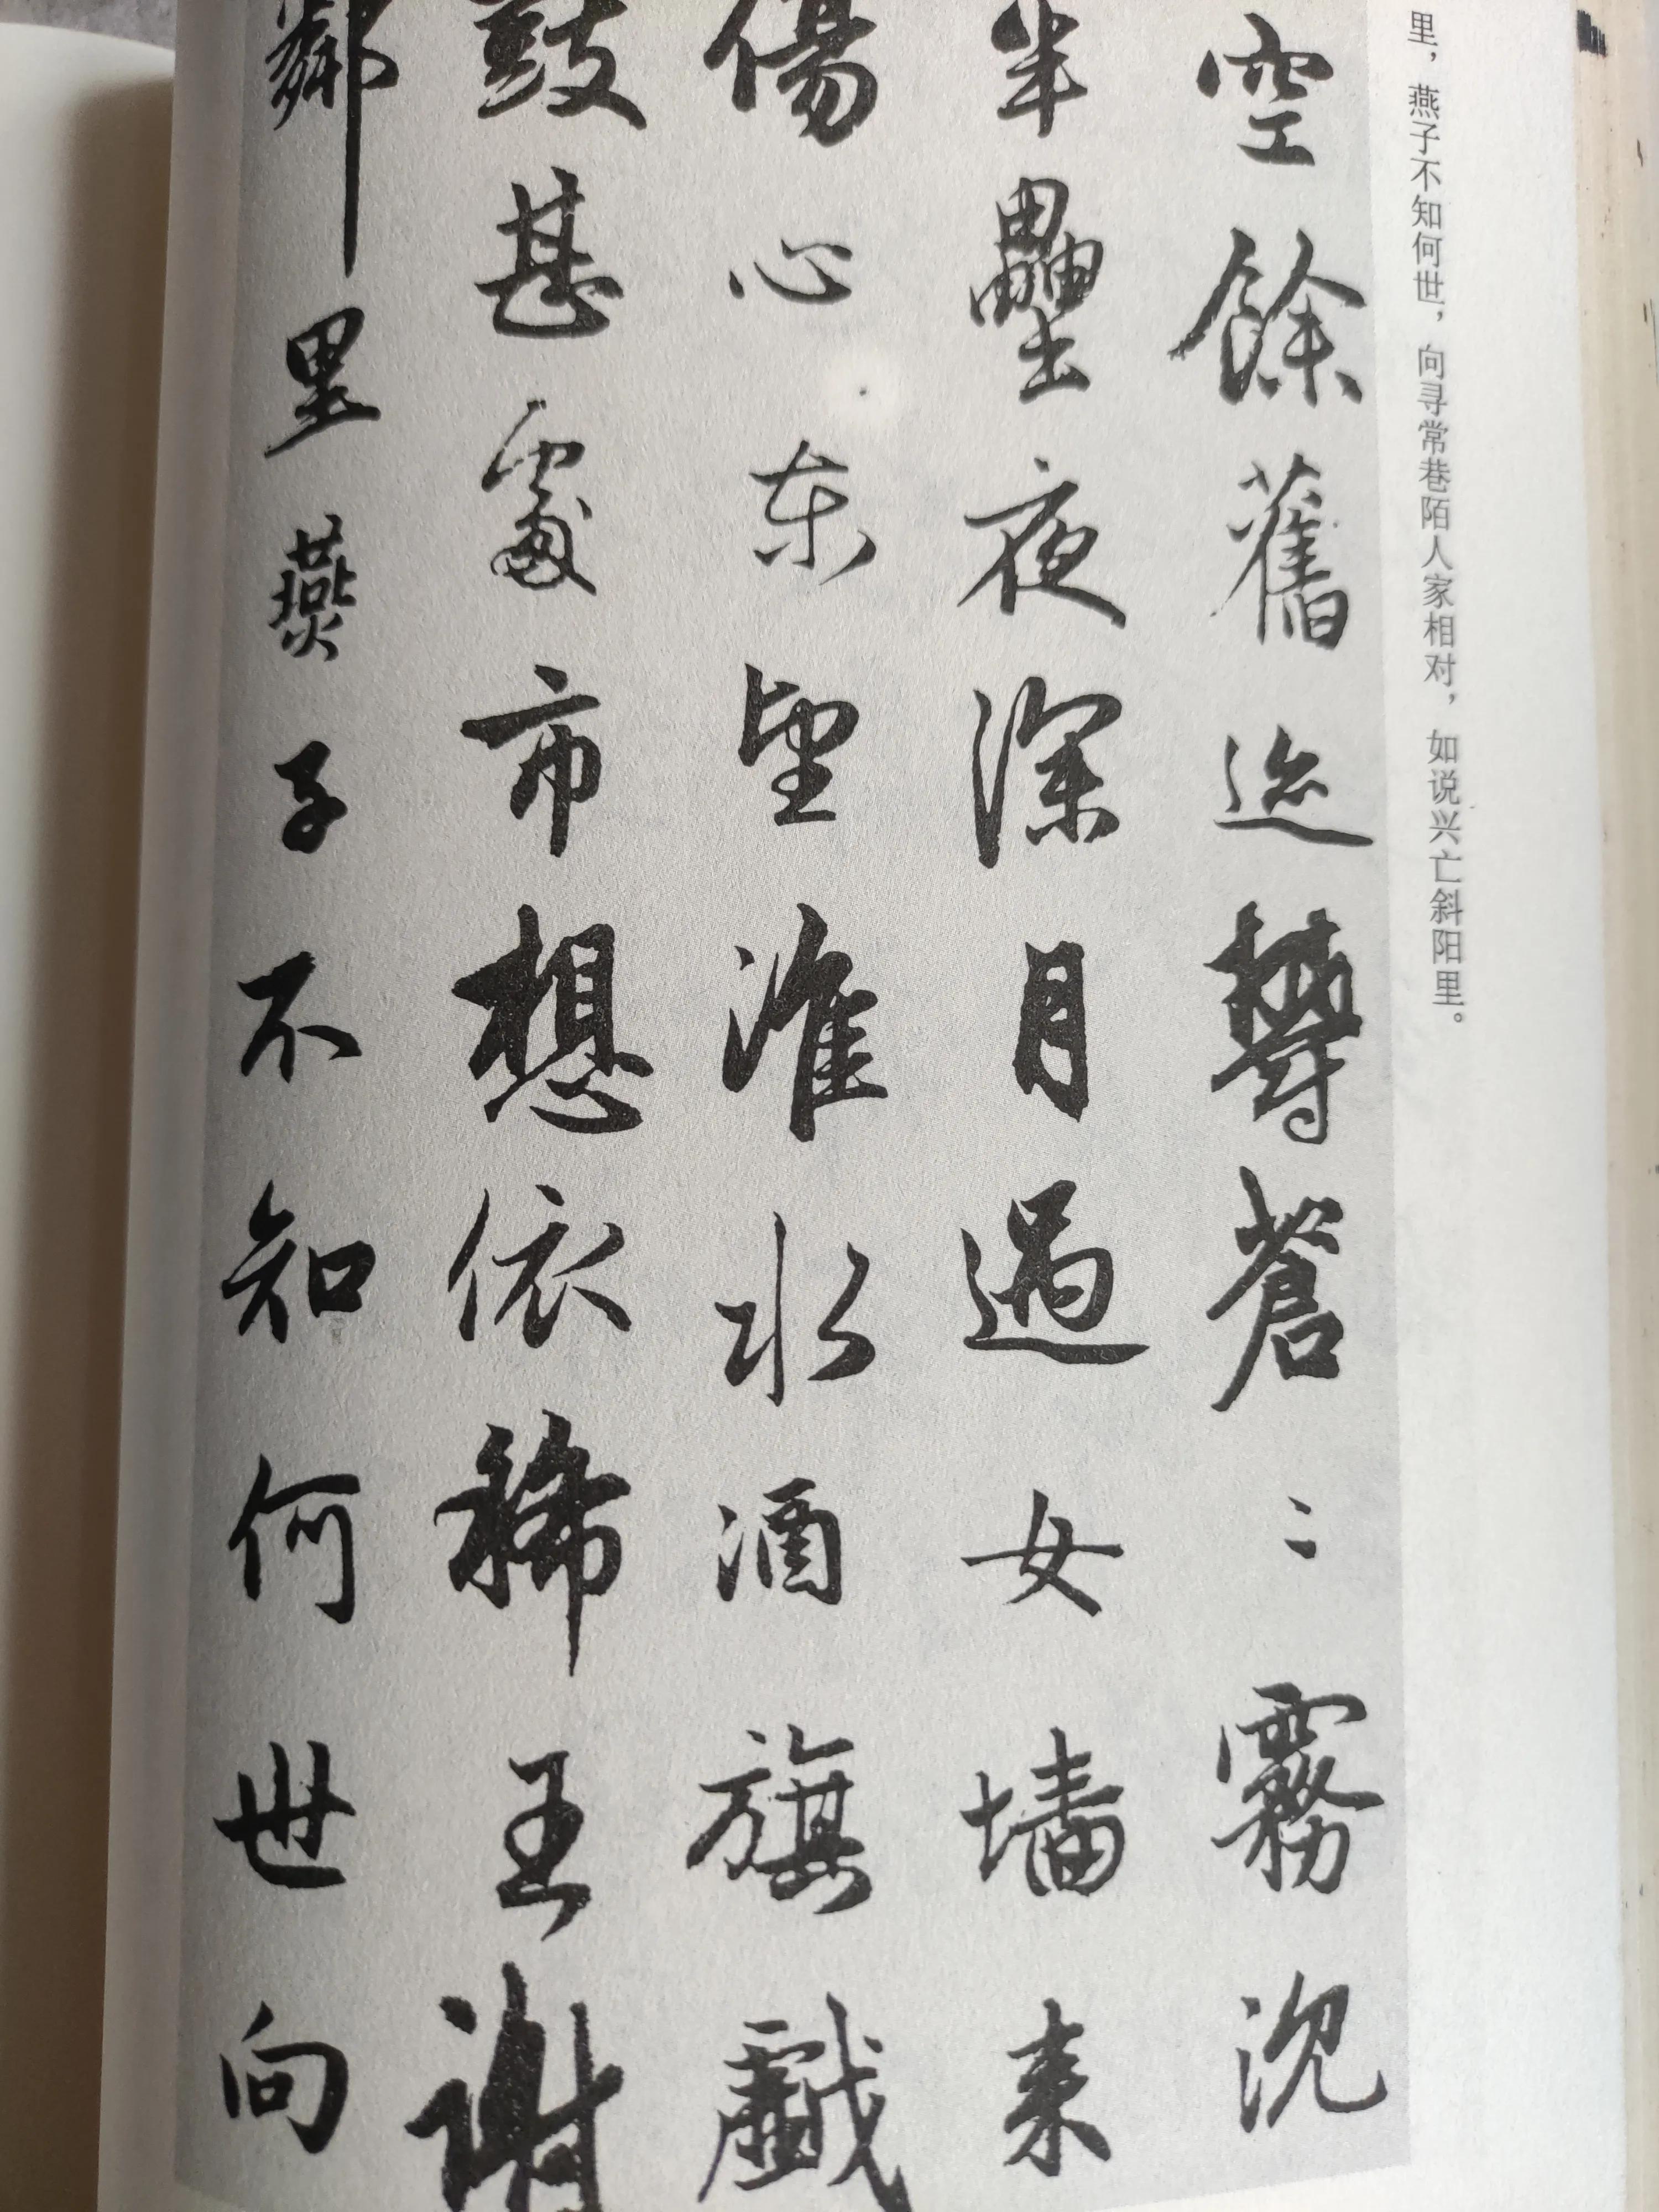 里，燕子不知何世，向寻常巷陌人家相对，如说兴亡斜阳里。
空餘舊迹鬱蒼〻霧沈
半壘夜深月過女墙来
傷心東望淮水酒旗戲
鼓甚處市想依稀王謝
鄰里燕子不知何世向